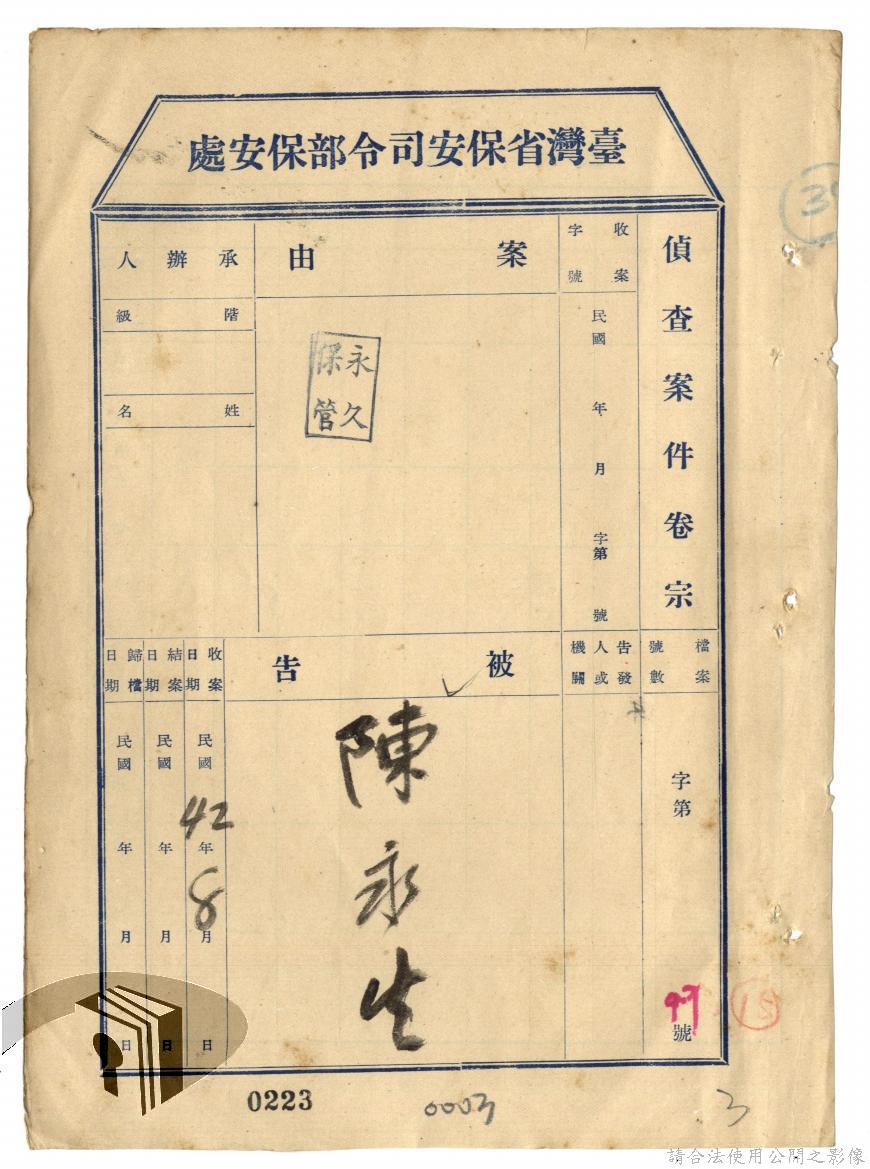 臺灣省保安司令部保安處
偵查案件卷宗
檔案號數
字第
97
號
收案字號
民國 年 月 字第 號
告發人或機關
案由
永久
保管
被告
陳永生
承辦人
階級
姓名
收案日期
民國42年8月 日
結案日期
民國 年 月 日
歸檔日期
民國 年 月 日
15
0223
0003
3
請合法使用公開之影像